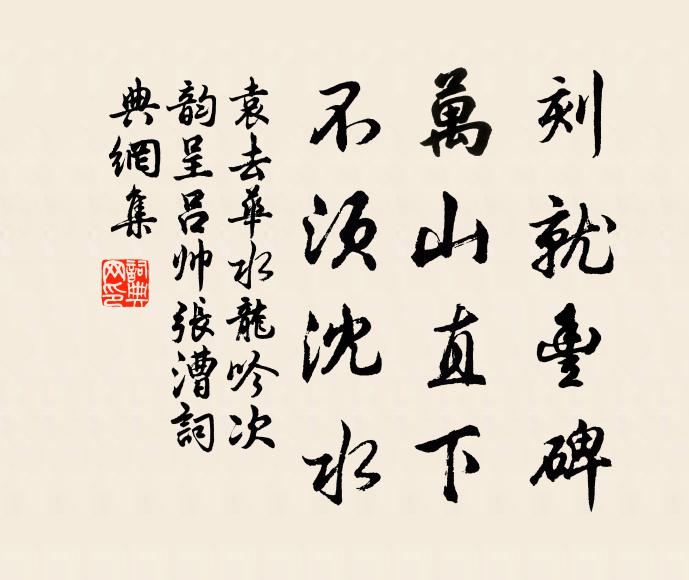 刻就豐碑
萬山直下
不須沈水
袁去華水龍吟次
韵呈呂帅張漕詞
典網集
詞典
网印